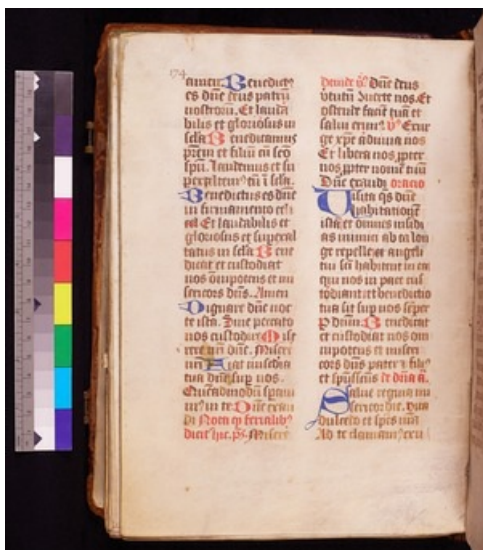 174
amen Benedict9
es dñe deus patrũ
nostrorũ. Et lauda
bilis et gloriosus in
scła Benedicamus
prẽm et filiũ cũ scõ
spũ. laudemus et su
perexaltem9 eũ ĩ scła.
Benedictus es dñe
in firmamento celi
Et laudabilis et
gloriosus et superal
tatus in scła Bene
dicat et custodiat
nos õnipotens et mi
sericors dñs. Amen
Dignare dñe noc
te ista. Sine peccato
nos custodire Mise
rere dñe. Miseri
Fiat misc̃dia
tua dñe sup nos.
Quẽadmodũ sperau
im9 in te. Dñe exau
di Nota q ferialib9
dicit hic. ps Misere
deinde Dñe deus
virtutũ 9uerte nos. Et
ostende faciẽ tuã et
salui erim9. V Exur
ge xp̃e adiuua nos
Et libera nos ꝓpter
nomẽ tuũ
Dñe exaudi oracio
Uisita q̃s dñe
habitationẽ
istã et omnes insidi
as inimici ab ea lon
ge repelle et angeli
tui scĩ habitent in ea
qui nos in pace cus
todiant et benedictio
tua sit sup nos sẽper
P dñum. Benedicat
et custodiat nos om
nipotens et miseri
cors dñs pater et fili9
et sp̃ussanct9 de dña ã.
Salue regina mi
sericordie. vita
dulcedo et spes nr̃a
Ad te clamam9 exu